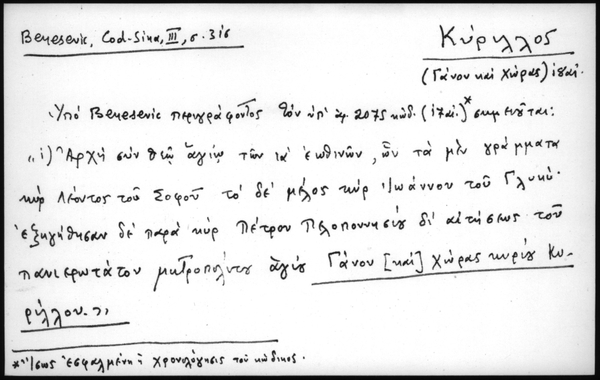 Benesevic, Cod-Sina, III, σ. 315
Κύριλλος
(Γάνου καί Χώρας) ιθαί.
Ὑπό Benesevic περιγράφοντος τόν ὑπ' ἀρ. 2075 κώδ. (ιζαί.)* σημειοῦται:
„1) Ἀρχή σύν θεῷ ἁγίῳ τῶν ια' ἑωθινῶν, ὧν τά μέν γράμματα
κύρ Λέοντος τοῦ Σοφοῦ τό δέ μέλος κύρ Ἰωάννου τοῦ Γλυκύ·
ἐξηγήθησαν δέ παρά κύρ Πέτρου Πελοποννησίου δι' αἰτήσεως τοῦ
πανιερωτάτου μητροπολίτου ἁγίου Γάνου [καί] Χώρας κυρίου Κυ-
ρίλλου."
* Ἴσως ἐσφαλμένη ἡ χρονολόγησις τοῦ κώδικος.